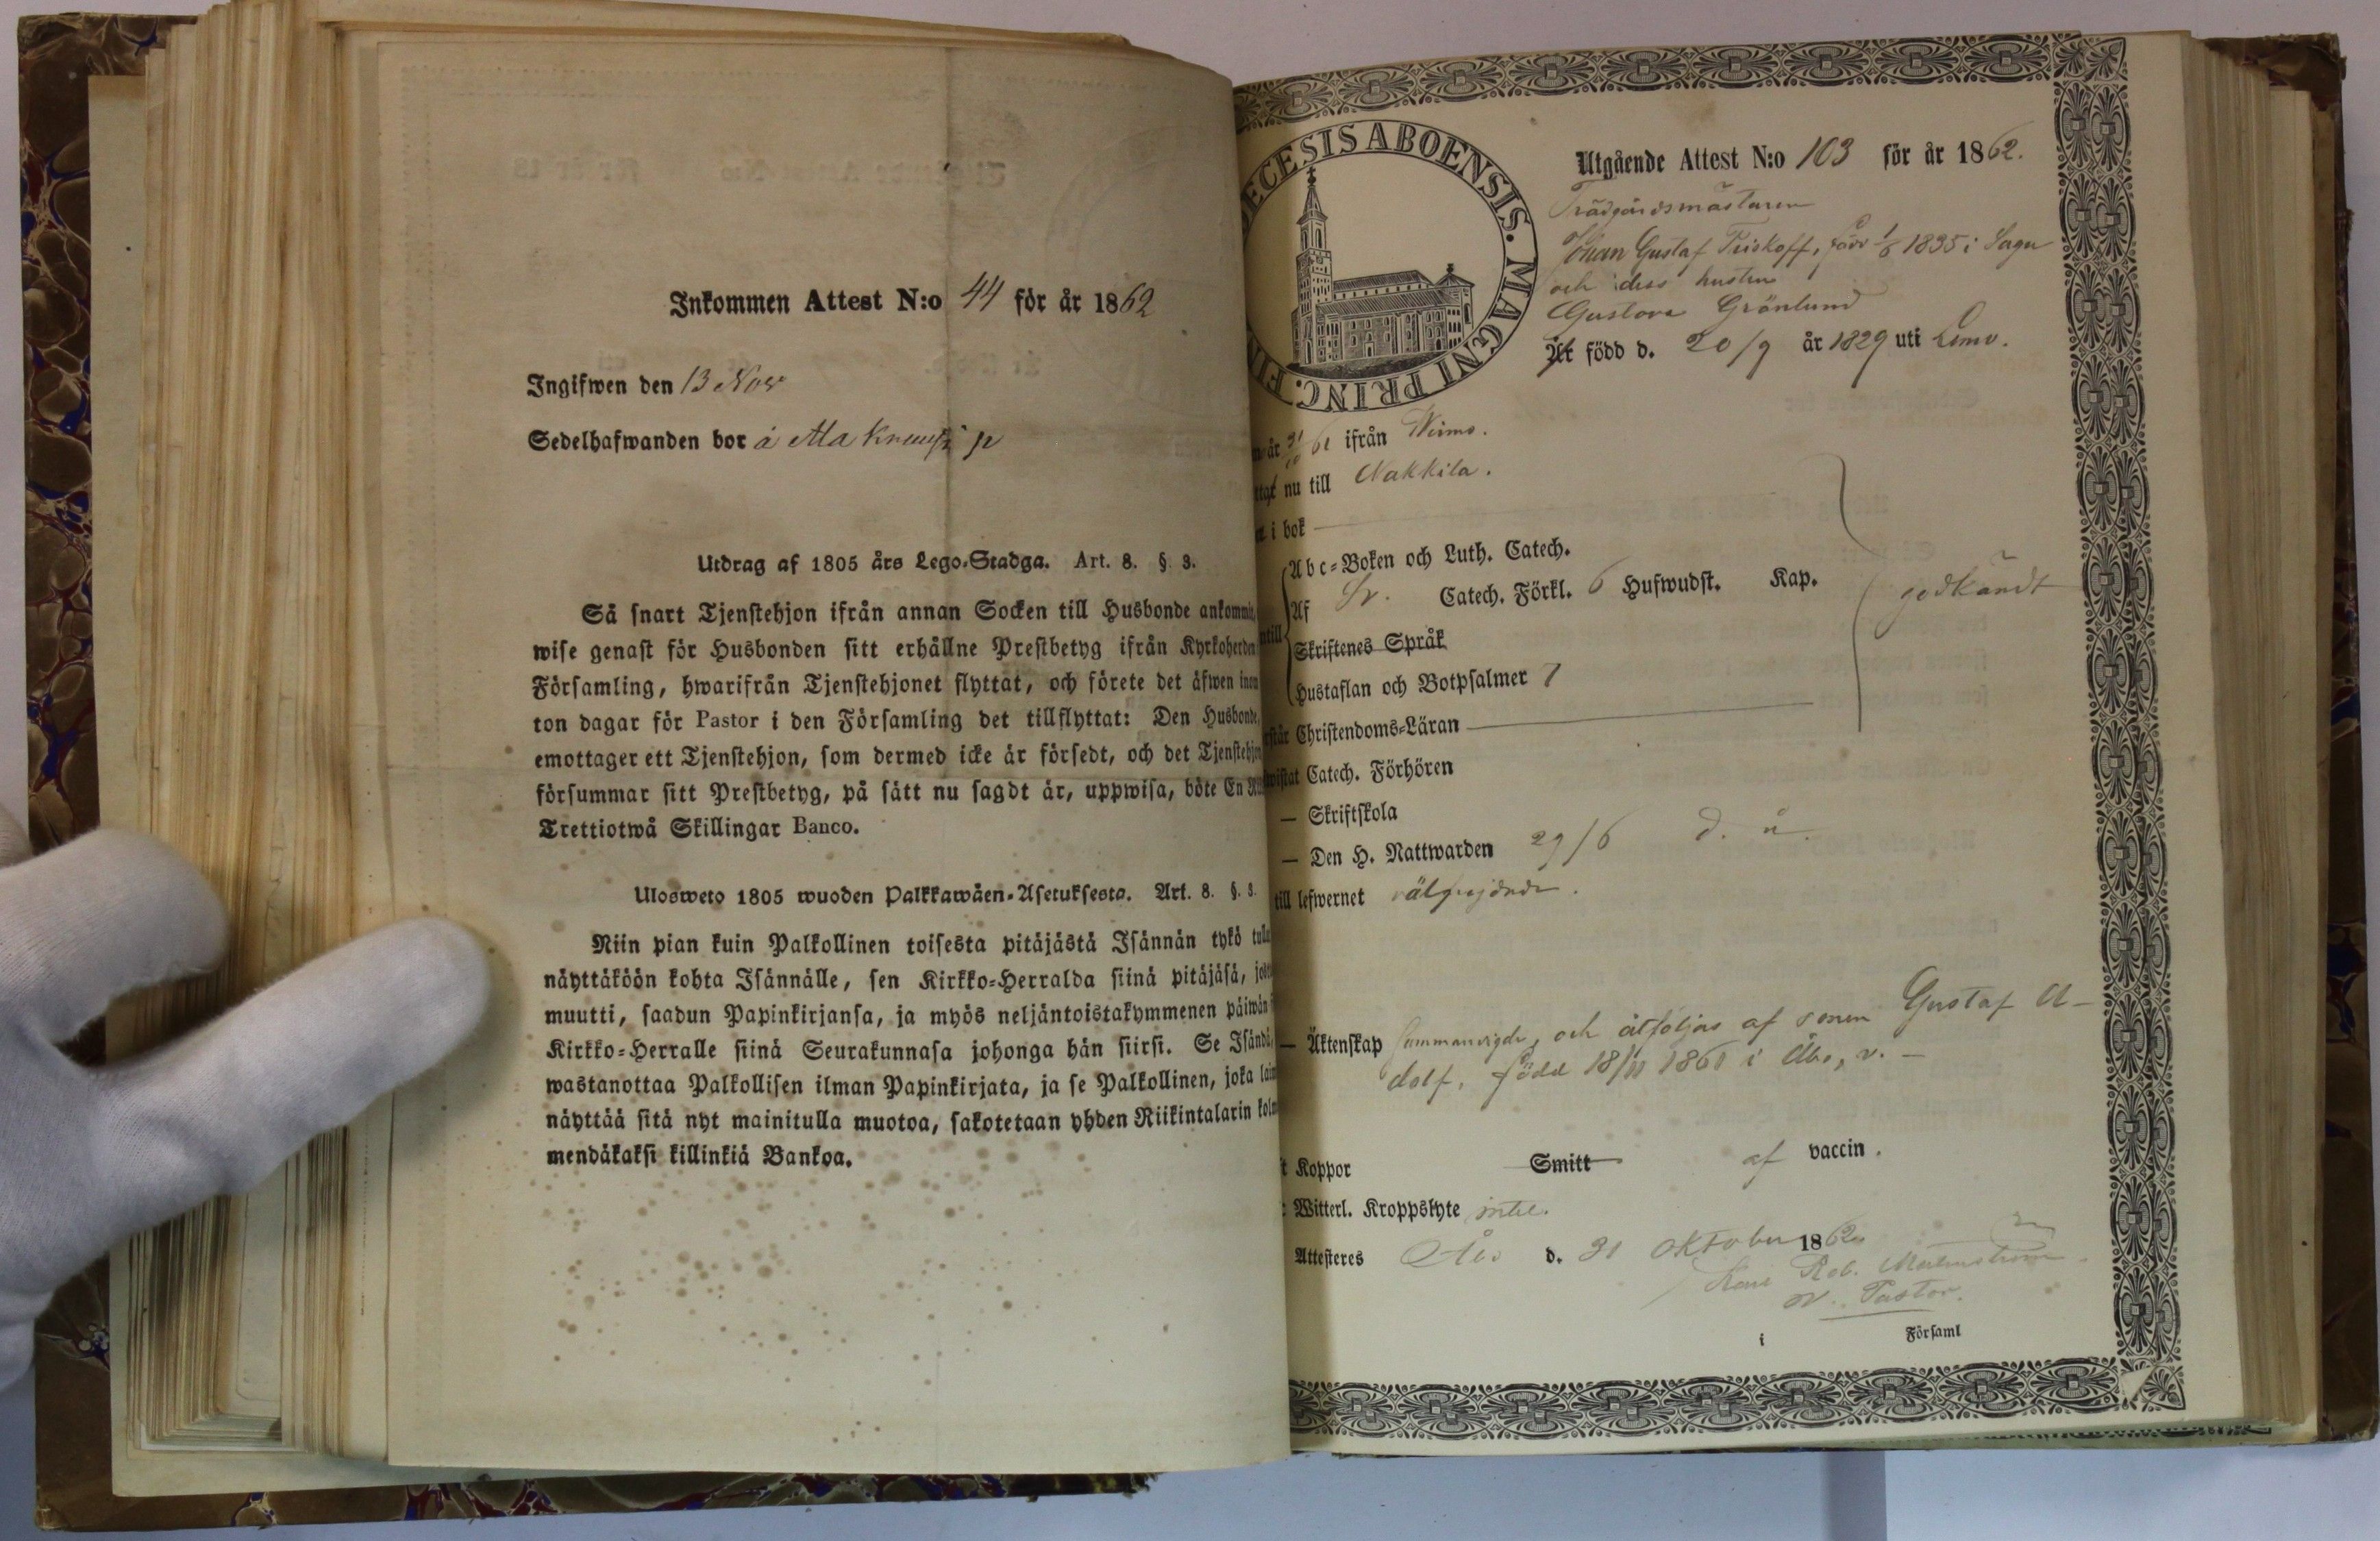 Inkommen Attest N:o 44 för år 1862
Ingifwen den 13 Nov
Sedelhafwanden bor å
Utdrag af 1805 års Lego-Stadga. Art. 8. §. 3.
Så snart Tjenstehjon ifrån annan Socken till Husbonde ankommit,
wise genast för Husbonden sitt erhållne Prestbetyg ifrån Kyrkoherden
Församling, hwarifrån Tjenstehjonet flyttat, och förete det äfwen inom
ton dagar för Pastor i den Församling det tillflyttat: Den Husbonde,
emottager ett Tjenstehjon, som dermed icke är försedt, och det Tjenstehjon
försummar sitt Prestbetyg, på sätt nu sagdt är, uppwisa, böte En
Trettiotwå Skillingar Banco.
Ulosweto 1805 wuoden Palkkawäen-Asetuksesta. Art. 8. §. 3.
Niin pian kuin Palkollinen toisesta pitäjästä Isännän tykö
näyttäköön kohta Isännälle, sen Kirkko-Herralda siinä pitäjäsä,
muutti, saadun Papinkirjansa, ja myös neljäntoistakymmenen päiwän
Kirkko-Herralle siinä Seurakunnasa johonga hän siirsi. Se Isändä,
wastanottaa Palkollisen ilman Papinkirjata, ja se Palkollinen, joka
näyttää sitä nyt mainitulla muotoa, sakotetaan yhden Riikintalarin
mendäkaksi killinkiä Bankoa.
ECESIS ABOENSIS. MAGNI PRINC. FI
Utgående Attest N:o 103 för år 1862.
Trädgårdsmästaren
Johan Gustaf född 1/8 1835 i Sagu
och dess hustru
Gustava Grönlund
Är född d. 20/9 år 1829 uti Lemo.
år 61 ifrån Wirmo.
nu till Nakkila.
i bok
Abc-Boken och Luth. Catech.
Af Sv. Catech. Förkl. 6 Hufwudst. Kap. godkändt
Skriftenes Språk
Hustaflan och Botpsalmer 7
Christendoms-Läran
Catech. Förhören
— Skriftskola
— Den H. Nattwarden 29/6 d. å.
till lefwernet välfrejdade.
— Äktenskap sammanvigde, och åtföljas af sonen Gustaf A-
dolf, född 18/11 1861 i Åbo, v. —
Koppor Smitt af vaccin.
Witterl. Kroppslyte intet.
Attesteres Åbo d. 31 Oktober 1862
Rob. Malmström
v. Pastor.
i Församl